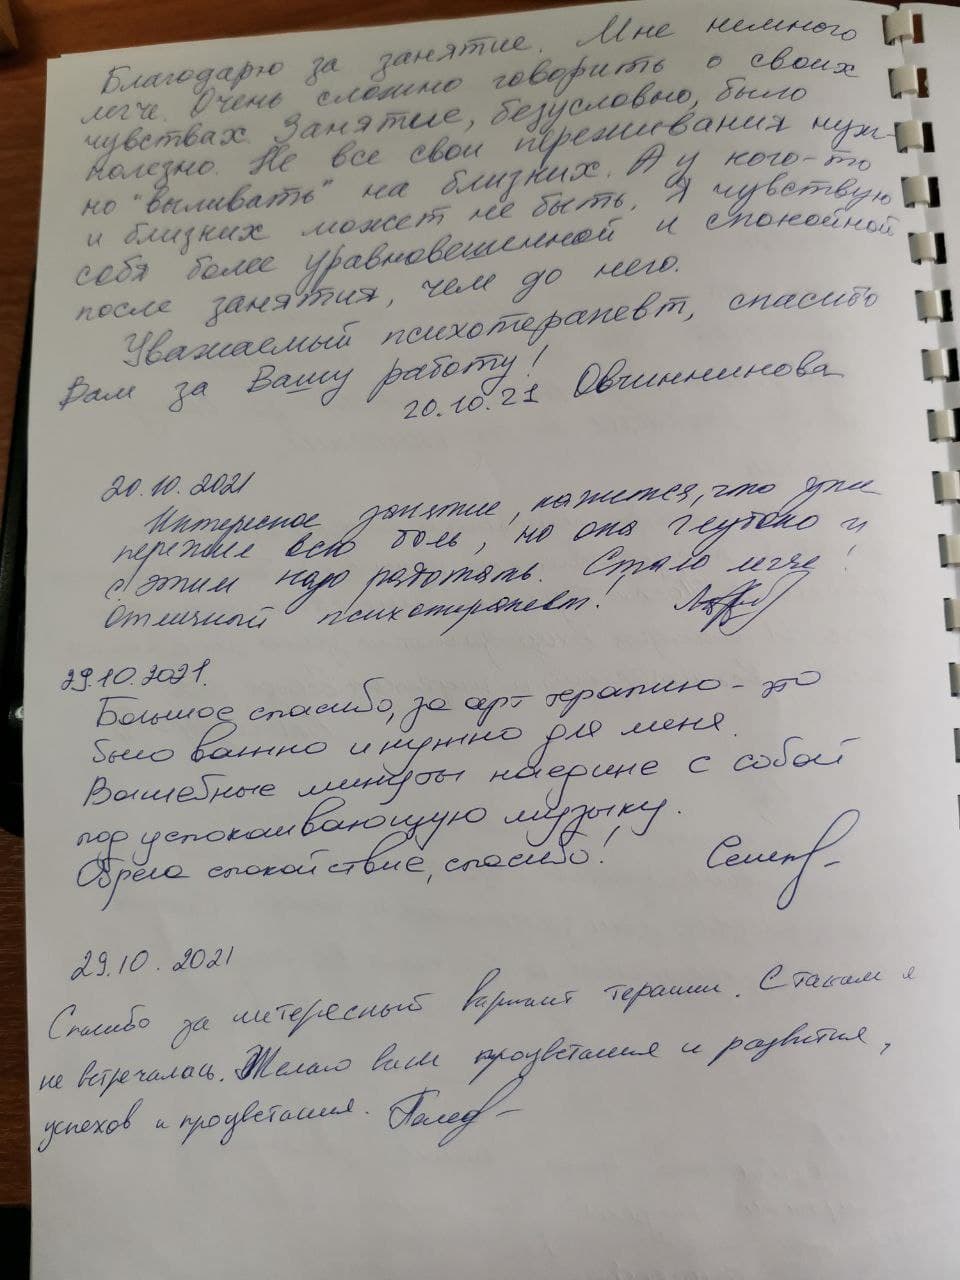 Благодарю за занятие. Мне немного
легче. Очень сложно говорить о своих
чувствах. Занятие, безусловно, было
полезно. Не все свои переживания нуж-
но "выливать" на близких. А у кого-то
и близких может не быть. Я чувствую
себя более уравновешенной и спокойной
после занятия, чем до него.
Уважаемый психотерапевт, спасибо
Вам за Вашу работу!
20.10.21 Овчинникова
20.10.2021
Интересное занятие, кажется, что уже
пережила всю боль, но она глубоко и
с этим надо работать. Стало легче!
Отличный психотерапевт!
29.10.2021.
Большое спасибо, за арт терапию - это
было важно и нужно для меня.
Волшебные минуты наедине с собой
под успокаивающую музыку.
Обрела спокойствие, спасибо!
29.10.2021
Спасибо за интересный вариант терапии. С таким я
не встречалась. Желаю вам процветания и развития,
успехов и процветания.